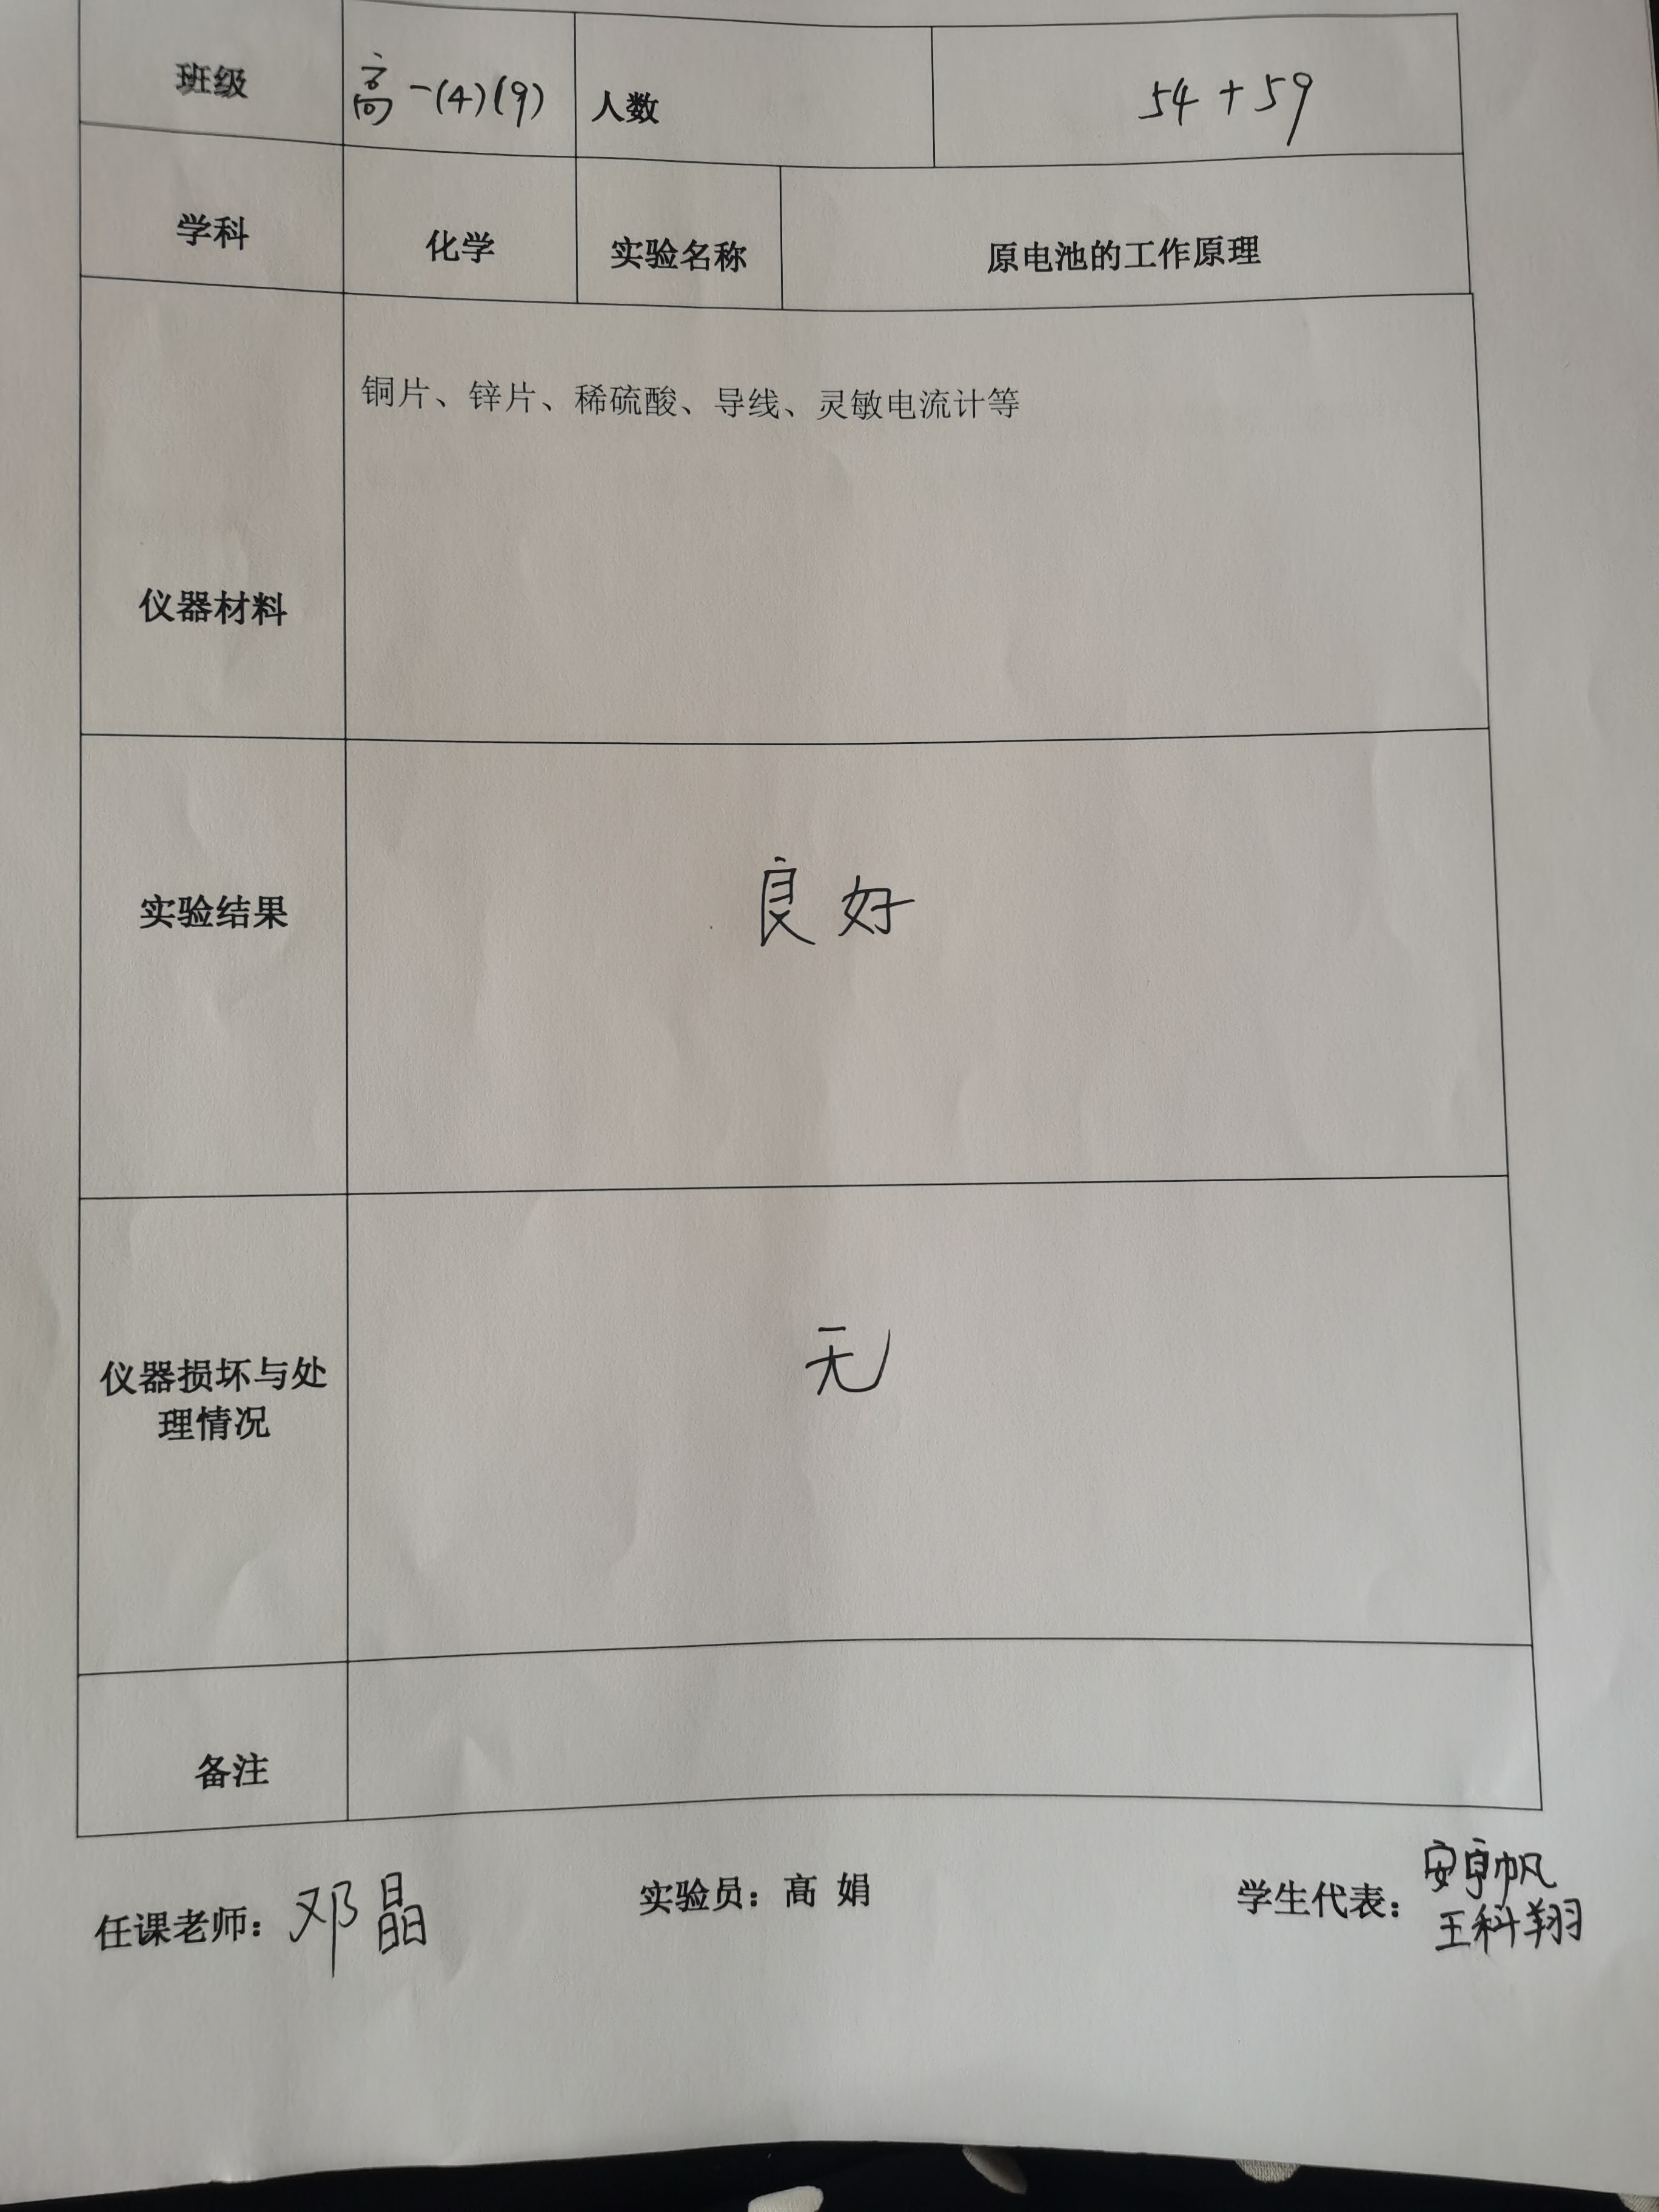 班级 高一(4)(9) 人数 54+59
学科 化学 实验名称 原电池的工作原理
铜片、锌片、稀硫酸、导线、灵敏电流计等
仪器材料
实验结果 良好
仪器损坏与处
理情况
无
备注
任课老师：邓晶 实验员：高 娟 学生代表：
王科翔